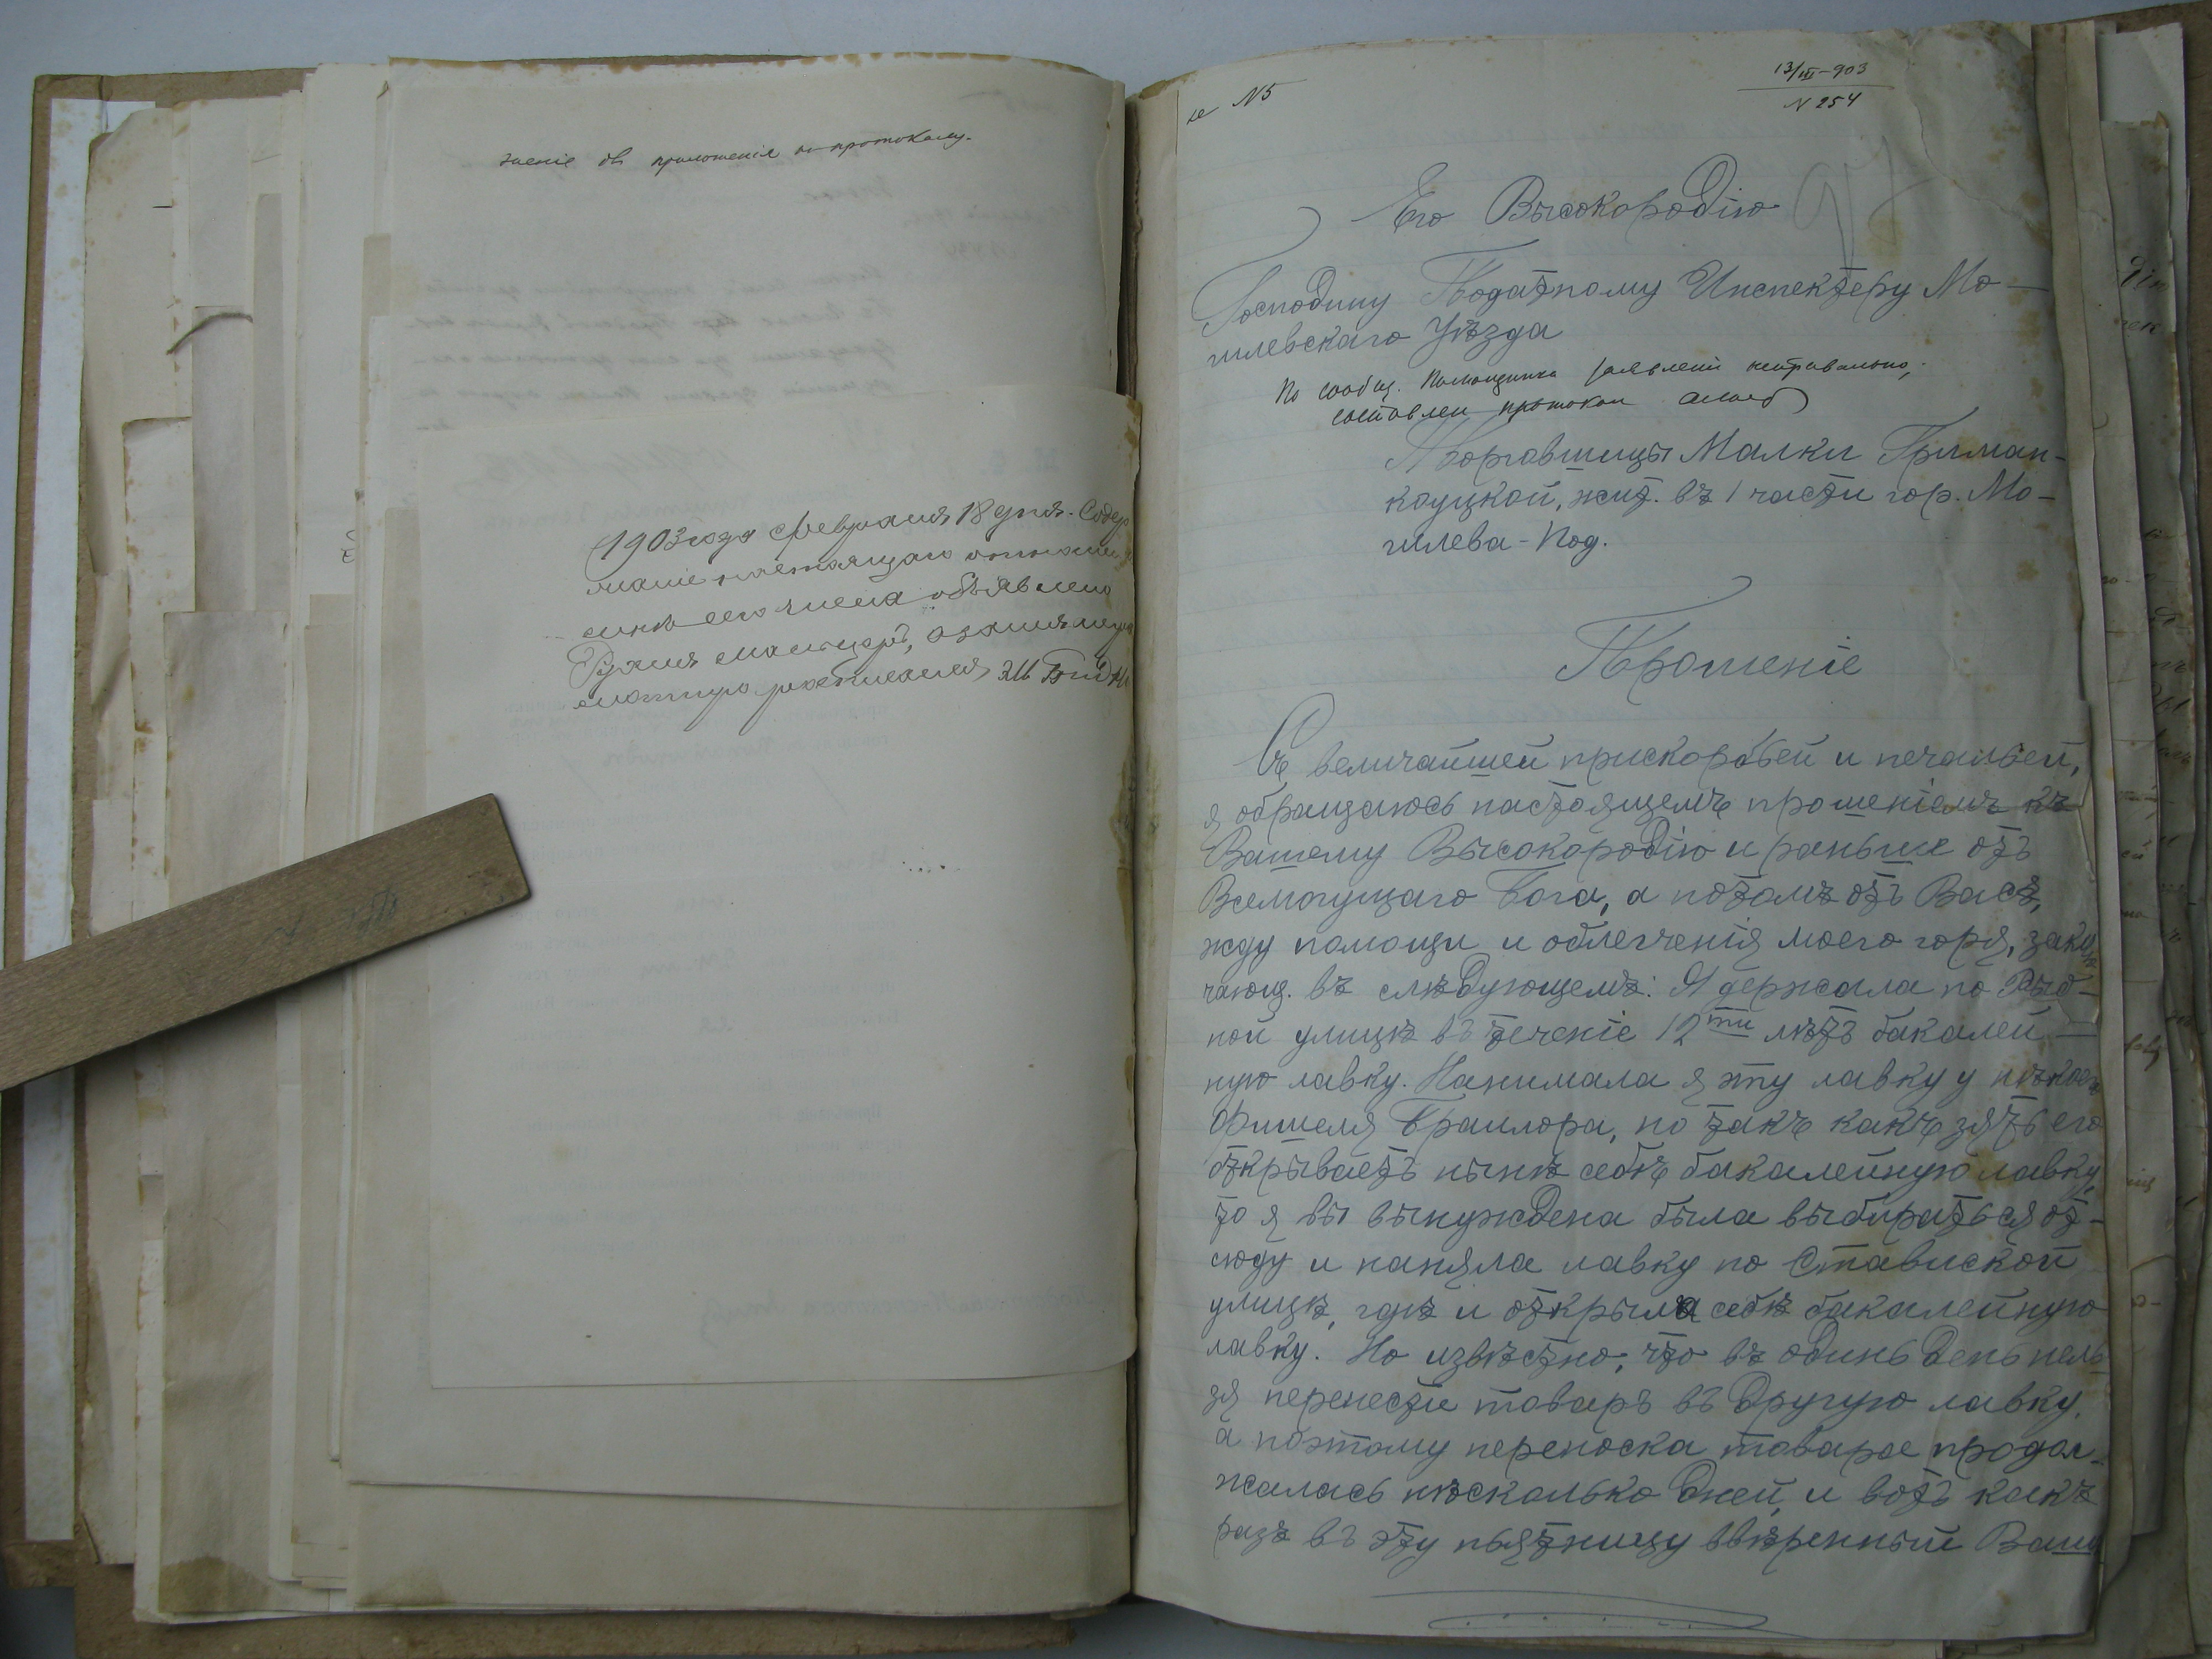 1903 года февраля 18 дня. Содер
жаніе настоящаго отноше
объявлено
№ 5
13/III-903
N 254
97
Его Высокородію
Господину Податному Инспектеру Мо-
гилевскаго Уѣзда
По сообщ. Помощника заявленіе неправильно,
составлен протокол
Торговшицы Малки Гриман-
коуцкой, жит. въ 1 части гор. Мо-
гилева-Под.
Прошеніе
Съ величайшей прискорбьей и печальей,
я обращаюсь настоящемъ прошеніемъ къ
Вашему Высокородію и раньше отъ
Всемогущаго Бога, а потомъ отъ Васъ,
жду помощи и облегченія моего горя, заклю
чающ. въ слѣдующемъ: Я держала по Рыб-
ной улицѣ въ теченіе 12ти лѣтъ бакалей-
ную лавку. Нанимала я эту лавку у нѣкоего
Фишеля Браилора, но такъ какъ зять его
открываетъ нынѣ себѣ бакалейную лавку,
то я вы вынуждена была выбираться от-
сюду и наняла лавку по Ставиской
улицѣ, гдѣ и открыла себѣ бакалейную
лавку. Но извѣстно, что въ одинь день нель
зя перенести товаръ въ другую лавку,
а поэтому переноска товарое продол-
жалась нѣсколько дней, и вотъ какъ
разъ въ эту пьятницу ввѣренный Ваш